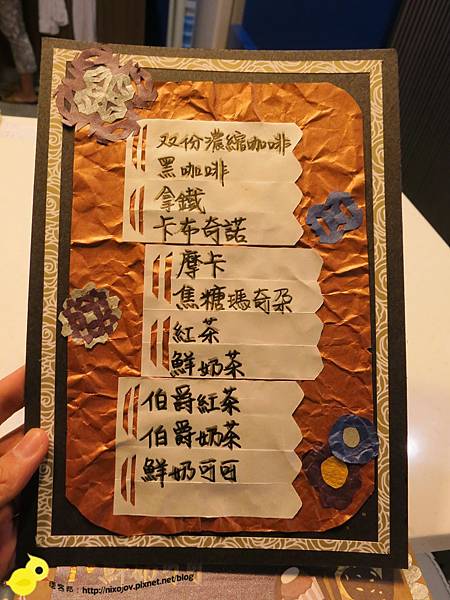 双份濃縮咖啡
黑咖啡
拿鐵
卡布奇諾
摩卡
焦糖瑪奇朵
紅茶
鮮奶茶
伯爵紅茶
伯爵奶茶
鮮奶可可
http://nixojov.pixnet.net/blog